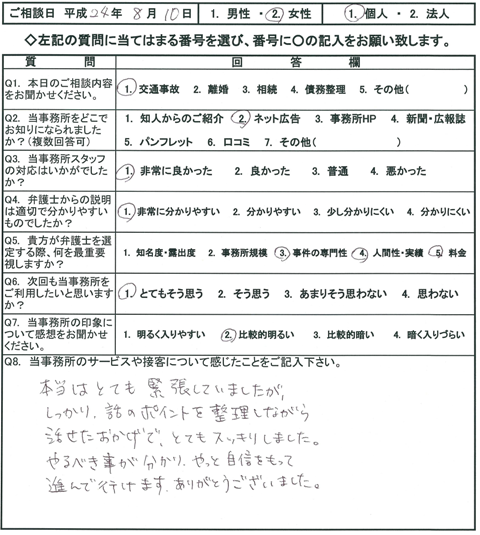 ご相談日 平成24年 8月 10日 1. 男性 ・ 2. 女性 1. 個人 ・ 2. 法人
◇左記の質問に当てはまる番号を選び、番号に〇の記入をお願い致します。
質 問 回 答 欄
Q1. 本日のご相談内容をお聞かせください。 1. 交通事故 2. 離婚 3. 相続 4. 債務整理 5. その他( )
Q2. 当事務所をどこで 1. 知人からのご紹介 2. ネット広告 3. 事務所HP 4. 新聞・広報誌
お知りになられましたか？(複数回答可) 5. パンフレット 6. 口コミ 7. その他( )
Q3. 当事務所スタッフの対応はいかがでしたか？ 1. 非常に良かった 2. 良かった 3. 普通 4. 悪かった
Q4. 弁護士からの説明は適切で分かりやすいものでしたか？ 1. 非常に分かりやすい 2. 分かりやすい 3. 少し分かりにくい 4. 分かりにくい
Q5. 貴方が弁護士を選定する際、何を最重要視しますか？ 1. 知名度・露出度 2. 事務所規模 3. 事件の専門性 4. 人間性・実績 5. 料金
Q6. 次回も当事務所をご利用したいと思いますか？ 1. とてもそう思う 2. そう思う 3. あまりそう思わない 4. 思わない
Q7. 当事務所の印象について感想をお聞かせください。 1. 明るく入りやすい 2. 比較的明るい 3. 比較的暗い 4. 暗く入りづらい
Q8. 当事務所のサービスや接客について感じたことをご記入下さい。
本当はとても緊張していましたが、
しっかり、話のポイントを整理しながら
話せたおかげで、とてもスッキリしました。
やるべき事が分かり、やっと自信をもって
進んで行けます。ありがとうございました。